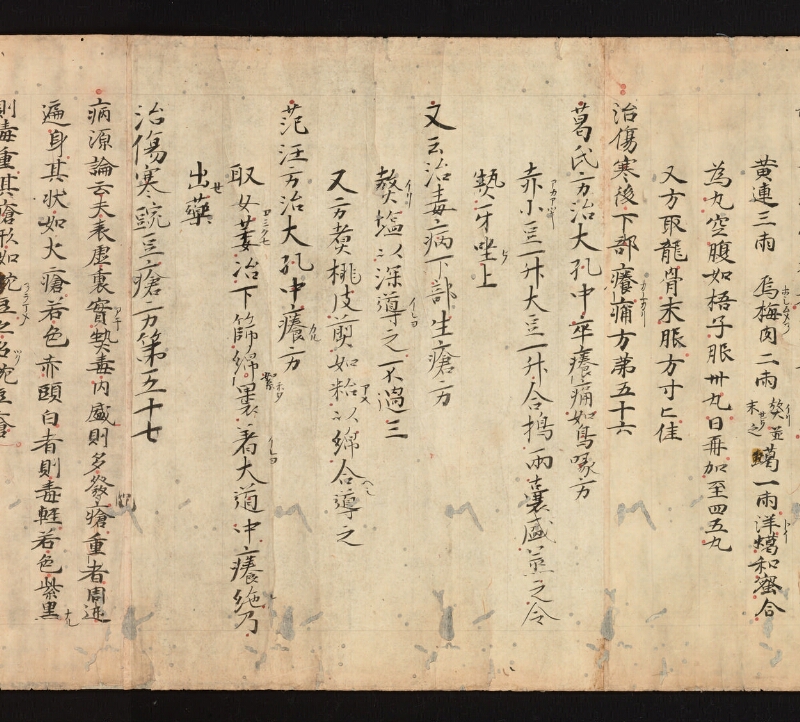 黄連三兩 烏梅肉二兩 熬並末之 蠟一兩 洋蠟和蜜合
為丸空腹如梧子服卅丸日再加至四五丸
又方取龍骨末服方寸匕佳
治傷寒後下部癢痛方第五十六
葛氏方治大孔中卒癢痛如鳥啄方
赤小豆一升大豆一升合搗兩囊盛蒸之令
熱牙坐上
又云治毒病下部生瘡方
熬塩以深導之不過三
又方煮桃皮煎如粭以綿合導之
范汪方治大孔中癢方
取女萎治下篩綿裹著大道中癢絶乃
出藥
治傷寒豌豆瘡方第五十七
病源論云夫表虚裏實熱毒内盛則多發瘡重者周迊
遍身其状如火瘡若色赤頭白者則毒輕若色紫黒
則毒重其瘡形如豌豆名豌豆瘡